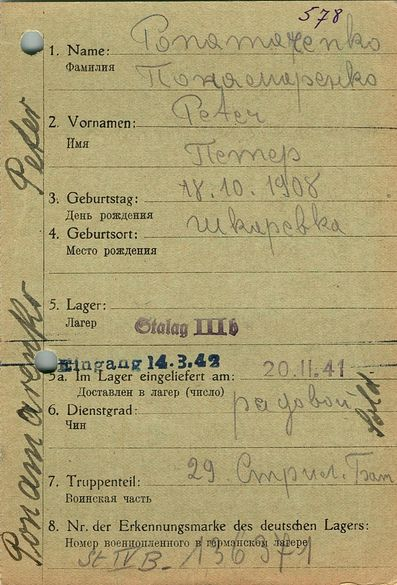 578
1. Name: Ponamarenko
Фамилия Понамаренко
2. Vornamen: Peter
Имя Петер
3. Geburtstag: 18.10.1908
День рождения
4. Geburtsort: Шкаревка
Место рождения
5. Lager: Stalag III b
Лагер
Eingang 14.3.42
5a. Im Lager eingeliefert am: 20.11.41
Доставлен в лагер (число)
6. Dienstgrad: радовой
Чин
7. Truppenteil: 29. Стрил. Бат
Воинская часть
8. Nr. der Erkennungsmarke des deutschen Lagers:
Номер военнопленного в германском лагере
St IV B - 136971
Ponamarenko Peter